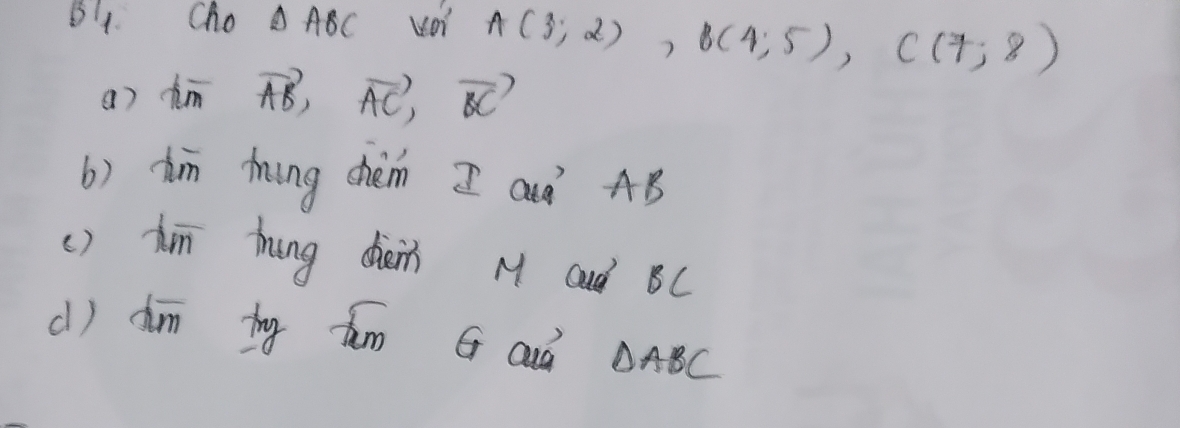 BT1. Cho Δ ABC với A(3; 2), B(4; 5), C(7; 8)
a) tìm AB→, AC→, BC→
b) tìm trung điểm I của AB
c) tìm trung điểm M của BC
d) tìm trọg tâm G của ΔABC